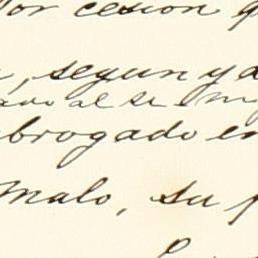 Por cesion q
, segun y a
ado al Sr
brogado en
Malo, su p